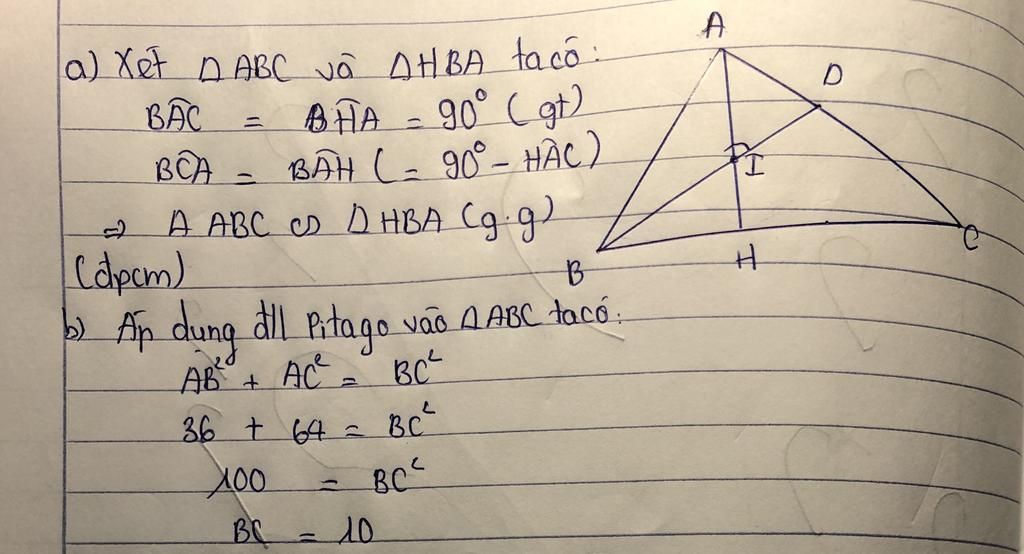 a) Xét Δ ABC và ΔHBA ta có:
BÂC = BĤA = 90° (gt)
BĈA = BÂH (= 90° - HÂC)
⇒ Δ ABC ∽ Δ HBA (g.g)
(đpcm)
b) Áp dụng đll Pitago vào ΔABC ta có:
AB² + AC² = BC²
36 + 64 = BC²
100 = BC²
BC = 10
A
D
I
B
H
C